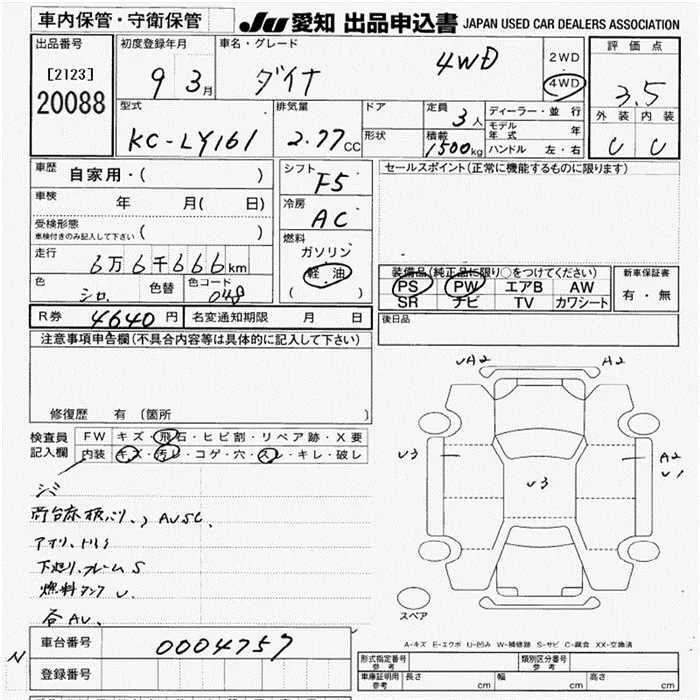 車内保管・守衛保管
JU 愛知 出品申込書 JAPAN USED CAR DEALERS ASSOCIATION
出品番号
[2123]
20088
初度登録年月
9 3月
車名・グレード
ダイナ 4WD
2WD
4WD
評価点
3.5
外装 内装
U U
型式
KC-LY161
排気量
2.77CC
ドア
形状
定員
3人
積載
1500kg
ディーラー・並行
モデル年式 年
ハンドル 左・右
車歴
自家用・( )
車検
年 月( 日)
受検形態
車検付きのみ記入して下さい ( )
走行
6万6千666km
色
シロ
色替
色コード
048
シフト
F5
冷房
AC
燃料
ガソリン
軽油
( )
セールスポイント(正常に機能するものに限ります)
装備品(純正品に限り○をつけてください)
PS PW エアB AW
SR ナビ TV カワシート
新車保証書
有・無
後日品
R券 4640円
名変通知期限 月 日
注意事項申告欄(不具合内容等は具体的に記入して下さい)
修復歴 有 (箇所 )
検査員
記入欄
FW キズ・飛石・ヒビ割・リペア跡・X要
内装 キズ・汚レ・コゲ・穴・スレ・キレ・破レ
シミ
荷台床板バリ、AUSC
アオリ、トリイ
下廻り、フレームS
燃料タンクU
各AU
UA2 A2
U3
U3
A2
U1
スペア
A-キズ E-エクボ U-凹み W-補修跡 S-サビ C-腐食 XX-交換済
N
車台番号
0004757
登録番号
形式指定番号
参考
類別区分番号
参考
車庫証明用
参考
長さ cm 幅 cm 高さ cm